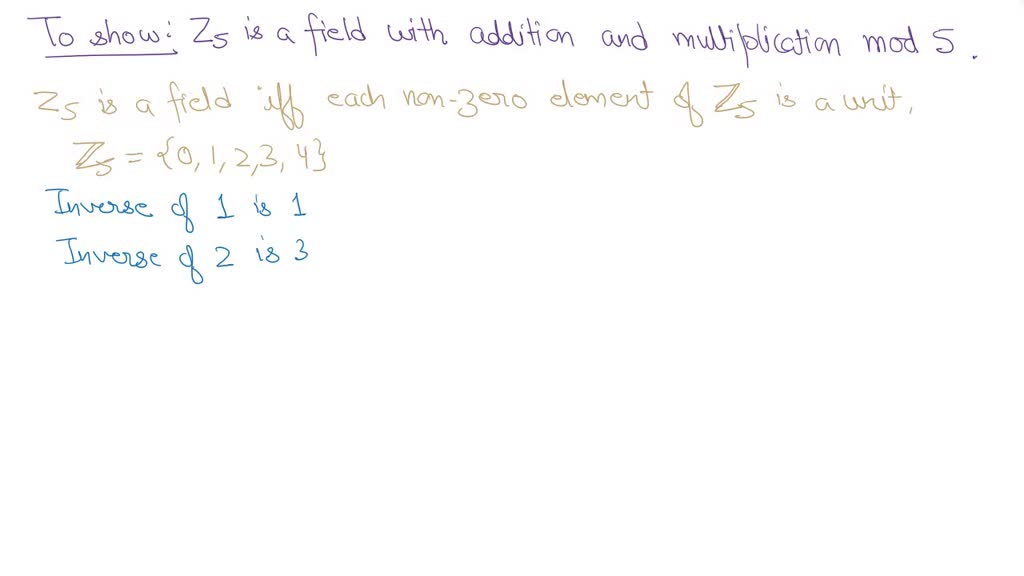 To show: Z5 is a field with addition and multiplication mod 5.
Z5 is a field iff each non-zero element of ℤ5 is a unit.
ℤ5 = {0, 1, 2, 3, 4}
Inverse of 1 is 1
Inverse of 2 is 3